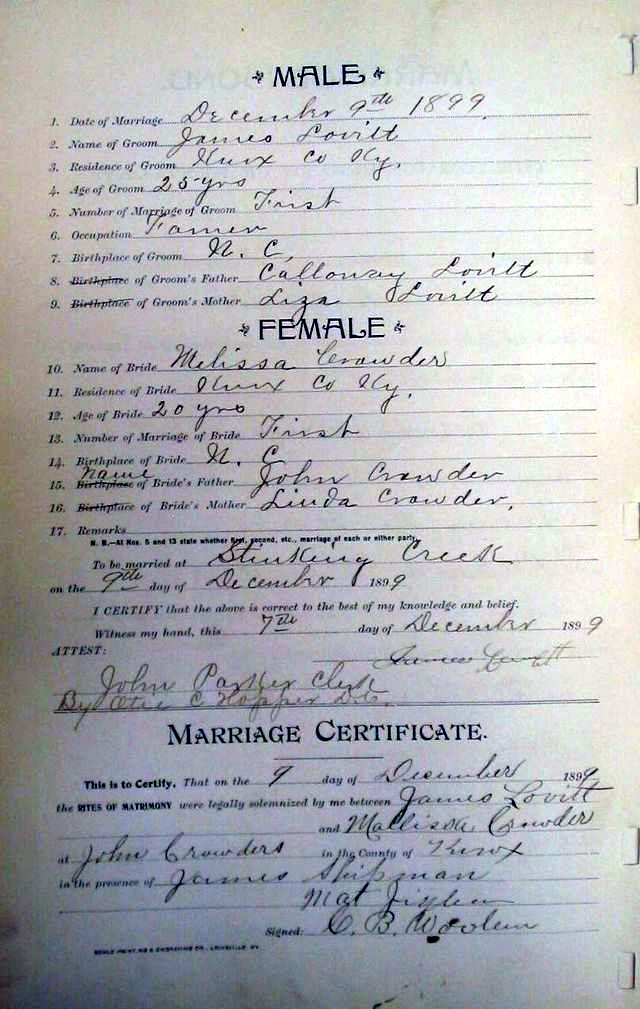 MALE
1. Date of Marriage December 9th 1899.
2. Name of Groom James Lovitt
3. Residence of Groom Knox Co Ky.
4. Age of Groom 25 yrs
5. Number of Marriage of Groom First
6. Occupation Farmer
7. Birthplace of Groom N. C,
8. Birthplace of Groom's Father Calloway Lovitt
9. Birthplace of Groom's Mother Liza Lovitt
FEMALE
10. Name of Bride Melissa Crowder
11. Residence of Bride Knox Co Ky.
12. Age of Bride 20 yrs
13. Number of Marriage of Bride First
14. Birthplace of Bride N. C
Name
15. Birthplace of Bride's Father John Crowder
16. Birthplace of Bride's Mother Linda Crowder,
17. Remarks
N. B.—At Nos. 5 and 13 state whether first, second, etc., marriage of each or either party.
To be married at Stinking Creek
on the 9th day of December 1899
I CERTIFY that the above is correct to the best of my knowledge and belief.
Witness my hand, this 7th day of December 1899
ATTEST:
James Lovitt
John Parker Clerk
By C Hopper D.C.
MARRIAGE CERTIFICATE.
This is to Certify, That on the 9 day of December 1899
the RITES OF MATRIMONY were legally solemnized by me between James Lovitt
and Mallissa Crowder
at John Crowders in the County of Knox
in the presence of James Shipman
Mat
Signed: C. B.